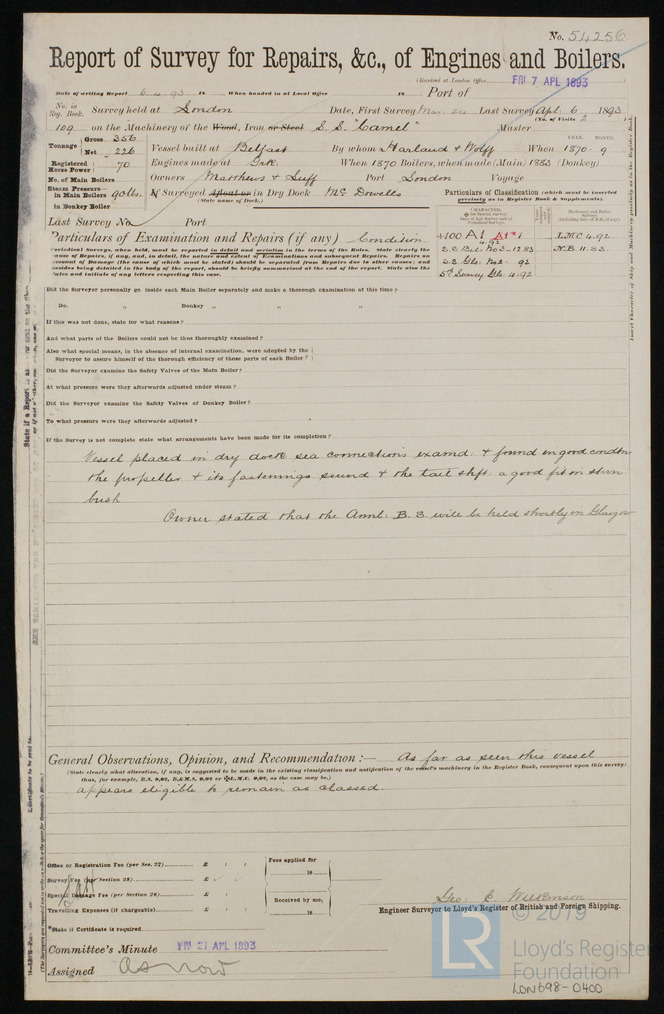 No. 54256
Report of Survey for Repairs, &c., of Engines and Boilers.
(Received at London Office FRI 7 APL 1893)
Date of writing Report 6.4.93 18 When handed in at Local Office 18 Port of
No. in Reg. Book. Survey held at London Date, First Survey Mar. 24 Last Survey Apl. 6 1893
(No. of Visits 2)
109 on the Machinery of the Wood, Iron or Steel S.S. "Camel" Master
Tonnage Gross 356 Net 226
Vessel built at Belfast By whom Harland & Wolff When 1870 - 9
YEAR. MONTH.
Registered Horse Power 70
Engines made at Grk. When 1870 Boilers, when made (Main) 1883 (Donkey)
No. of Main Boilers
Owners Matthews & Luff Port London Voyage
Steam Pressure in Main Boilers 90lbs.
in Donkey Boiler
If Surveyed Afloat or in Dry Dock McDowells
(State name of Dock.)
Particulars of Classification (which must be inserted precisely as in Register Book & Supplements).
Last Survey No. Port
Particulars of Examination and Repairs (if any) Condition
+100 A1 A1* L.M.C. 4.92
4.92
S.S. Bel. No3-12.83 N.B. 11.83
S.S. Glo: No2- 92
5th Survey Glo: 4.92
Periodical Surveys, when held, must be reported in detail and seriatim in the terms of the Rules. State clearly the
cause of Repairs, if any, and, in detail, the nature and extent of Examinations and subsequent Repairs. Repairs on
account of Damage (the cause of which must be stated) should be separated from Repairs due to other causes; and
besides being detailed in the body of the report, should be briefly summarised at the end of the report. State also the
dates and initials of any letters respecting this case.
Did the Surveyor personally go inside each Main Boiler separately and make a thorough examination at this time?
Do. „ Donkey „ „ „
If this was not done, state for what reasons?
And what parts of the Boilers could not be thus thoroughly examined?
Also what special means, in the absence of internal examination, were adopted by the
Surveyor to assure himself of the thorough efficiency of those parts of each Boiler?
Did the Surveyor examine the Safety Valves of the Main Boiler?
At what pressure were they afterwards adjusted under steam?
Did the Surveyor examine the Safety Valves of Donkey Boiler?
To what pressure were they afterwards adjusted?
If the Survey is not complete state what arrangements have been made for its completion?
Vessel placed in dry dock sea connections examd. & found in good condtn
the propeller & its fastenings sound & the tail shft. a good fit in stern
bush
Owner stated that the Annl. B.S. will be held shortly in Glasgow
General Observations, Opinion, and Recommendation:— As far as seen this vessel
(State clearly what alteration, if any, is suggested to be made in the existing classification and notification of the vessel's machinery in the Register Book, consequent upon this survey;
thus, for example, B.S. 9,92, B.&M.S. 9,92 or L.M.C. 9,92, as the case may be.)
appears eligible to remain as classed.
Office or Registration Fee (per Sec. 27) £
Survey Fee (per Section 28) £
Special Damage Fee (per Section 28) £
Travelling Expenses (if chargeable) £
Fees applied for 18
Received by me, 18
*State if Certificate is required
Geo. E. Wilkinson
Engineer Surveyor to Lloyd's Register of British and Foreign Shipping.
Committee's Minute FRI 21 APL 1893
Assigned As now
© 2019
LR
Lloyd's Register
Foundation
LON698-0400